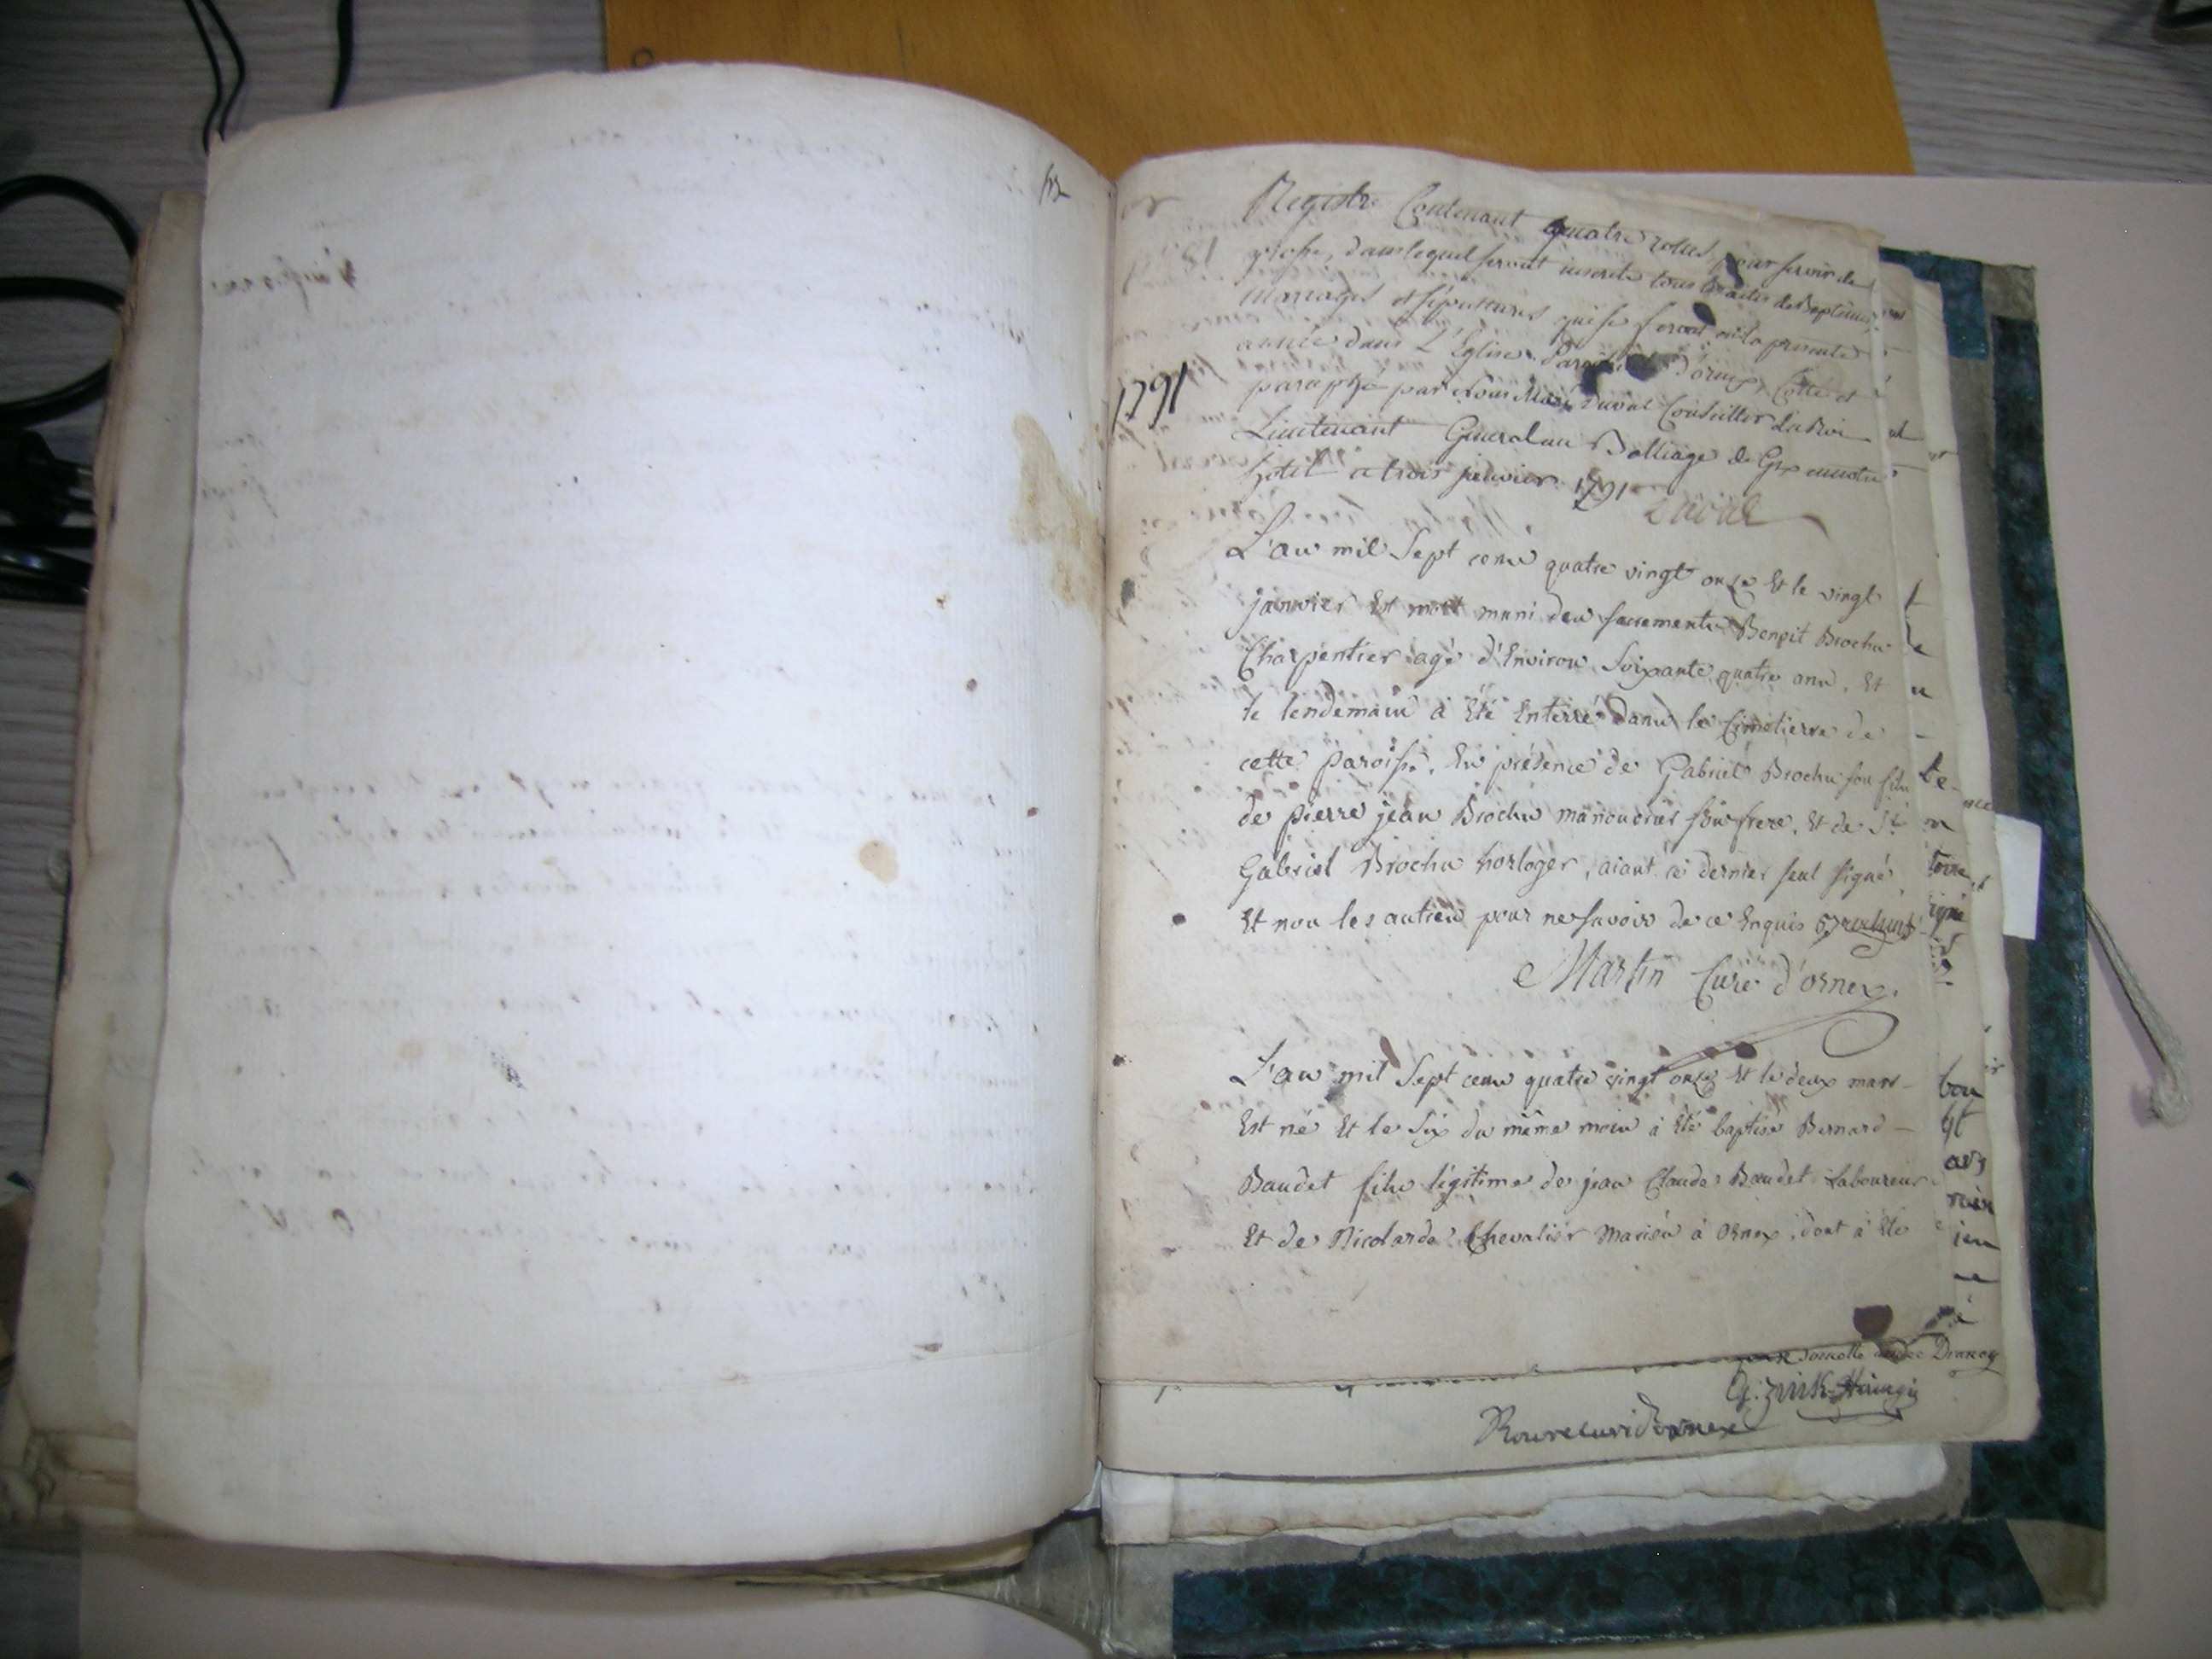 Registre Contenant quatre rolles, pour servir de
grosse, dans lequel seront inscrits tous les actes de Baptêmes,
mariages et sépultures qui se feront en la presente
année dans L'Eglise d'ornex, Cotté et
paraphé par Nous Duval Conseiller du Roi
Lieutenant General au Balliage de Gex en notre
hotel ce trois janvier 1791 Duval
1791
L'an mil Sept cens quatre vingt onze Et le vingt
janvier Est mort muni des sacrements Benoit Brochu
Charpentier agé d'Environ Soixante quatre ans, Et
le lendemain a Eté Enterré dans le Cimetierre de
cette paroisse. En présence de Gabriel Brochu son fils
de pierre jean Brochu manouvrier son frere, Et de Sr
Gabriel Brochu horloger, aiant ce dernier seul signé,
Et non les autres pour ne savoir de ce Enquis
Martin Curé d'ornex.
L'an mil Sept cens quatre vingt onze Et le deux mars
Est né Et le Six du même mois a Eté baptisé Bernard
Baudet fils légitime de jean Claude Baudet Laboureur
Et de Nicolarde Chevalier mariés à Ornex, dont a Eté